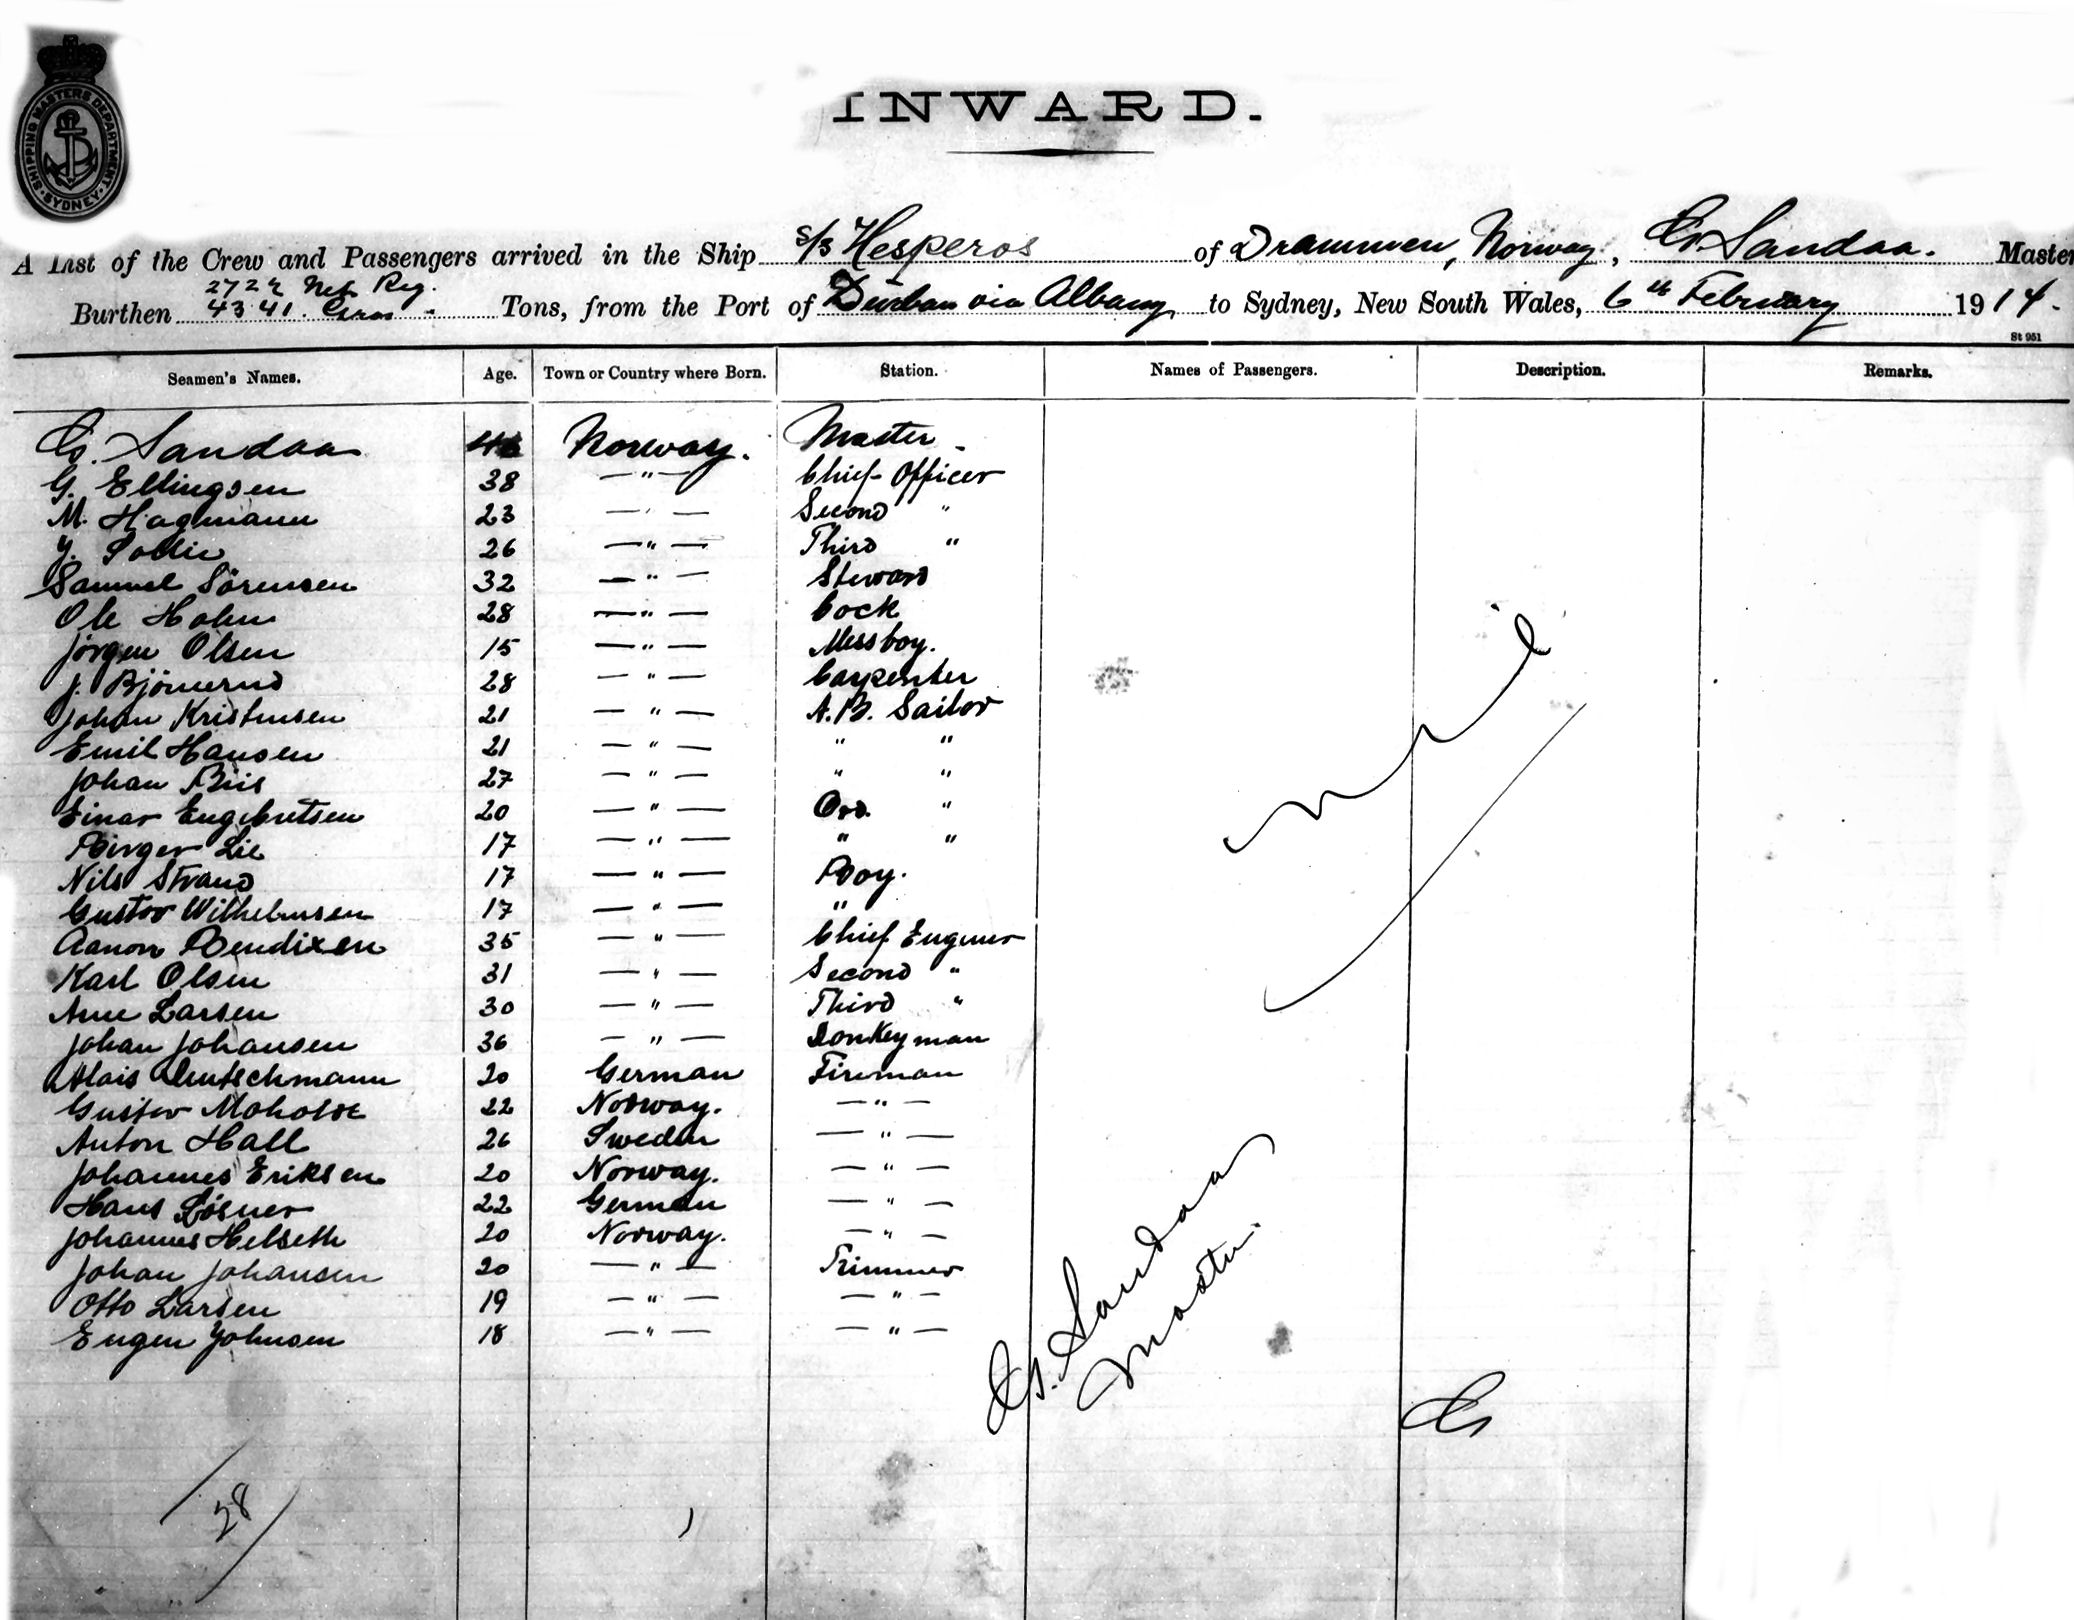 SHIPPING MASTERS DEPARTMENT · SYDNEY ·
INWARD.
A List of the Crew and Passengers arrived in the Ship s/s Hesperos of Drammen, Norway, Sandaa. Master
2722 Net Reg.
Burthen 4341. Gross Tons, from the Port of Durban via Albany to Sydney, New South Wales, 6th February 1914.
St 951
Seamen's Names. Age. Town or Country where Born. Station. Names of Passengers. Description. Remarks.
Sandaa Norway. Master
G. Ellingsen 38 — " — Chief Officer
M. Hagmann 23 — " — Second "
26 — " — Third "
Samuel Sörensen 32 — " — Steward
Ole Holm 28 — " — Cock
Jörgen Olsen 15 — " — Messboy.
J. 28 — " — Carpenter
Johan Kristensen 21 — " — A.B. Sailor
Emil Hansen 21 — " — " "
Johan Riis 27 — " — " "
Einar Engebretsen 20 — " — Ord. "
Birger Lie 17 — " — " "
Nils Strand 17 — " — Boy.
Gustav Wilhelmsen 17 — " — "
Aanon Bendixen 35 — " — Chief Engineer
Karl Olsen 31 — " — Second "
Arne Larsen 30 — " — Third "
Johan Johansen 36 — " — Donkeyman
Alois Deutschmann 20 German Fireman
Gustav 22 Norway. — " —
Anton Hall 26 Sweden — " —
Johannes Eriksen 20 Norway. — " —
Hans Lösner 22 German — " —
Johannes Helseth 20 Norway. — " —
Johan Johansen 20 — " — Trimmer
Otto Larsen 19 — " — — " —
Eugen Johnsen 18 — " — — " —
Nil
Sandaa
Master.
28